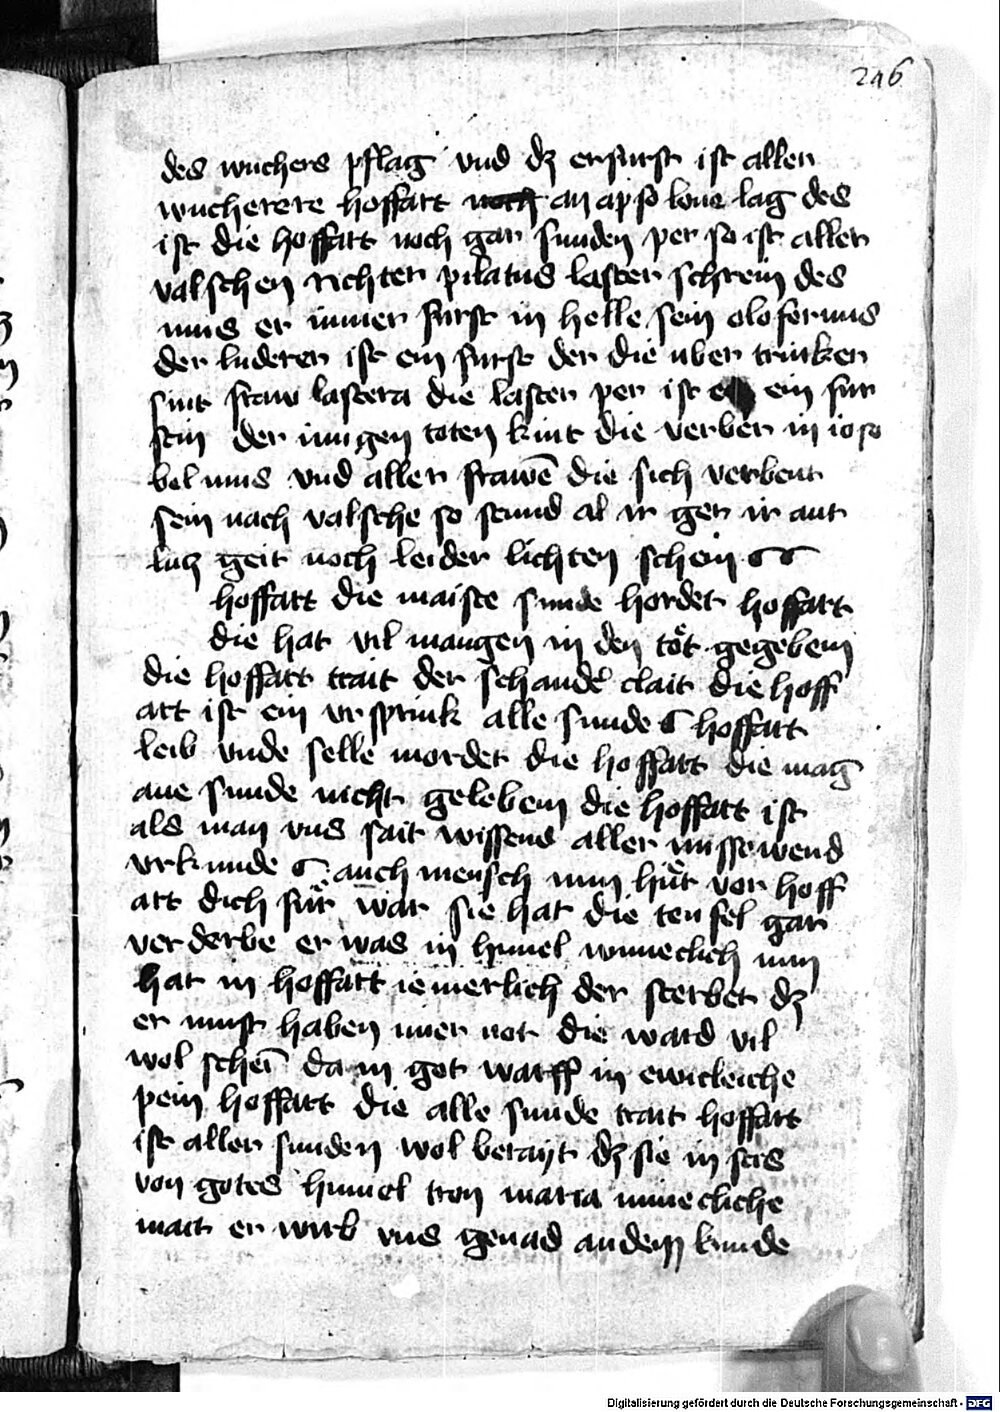 246
des wuchers pflag vnd dz er furst ist aller
wucherere hoffart noch an apsolons lag des
ist die hoffart noch gar sunden per so ist aller
valschen richter pilatus laster schrein des
mus er imer furst in helle sein olofernus
der luderer ist ein furst der die vber trinken
sint fraw lastera die laster per ist ein fur
stin der iungen toten kint die verber in ioso
bel mus vnd aller frawē die sich verbent
sein nach valsche so stund al ir ger ir ant
lucz geit noch leider lichten schein
hoffart die maiste sunde hordet hoffart
die hat vil mangen in den tot gegeben
die hoffart trait der schande clait die hoff
art ist ein vrsprink alle sunde hoffart
leib vnde selle mordet die hoffart die mag
ane sunde nicht geleben die hoffart ist
als man vns sait wissens aller missewend
vrkunde auch mensch nun hüt vor hoff
art dich für war sie hat die teufel gar
verderbe er was in himel wuneclich nun
hat in hoffart iemerlich der sterbet dz
er must haben imer not die ward vil
wol schei da in got warff in ewicleiche
pein hoffart die alle sunde trait hoffart
ist aller sunden wol berayt dz sie in sties
von gotes himel tron maria minecliche
mait er wirb vns genad an dem kinde
Digitalisierung gefördert durch die Deutsche Forschungsgemeinschaft - DFG